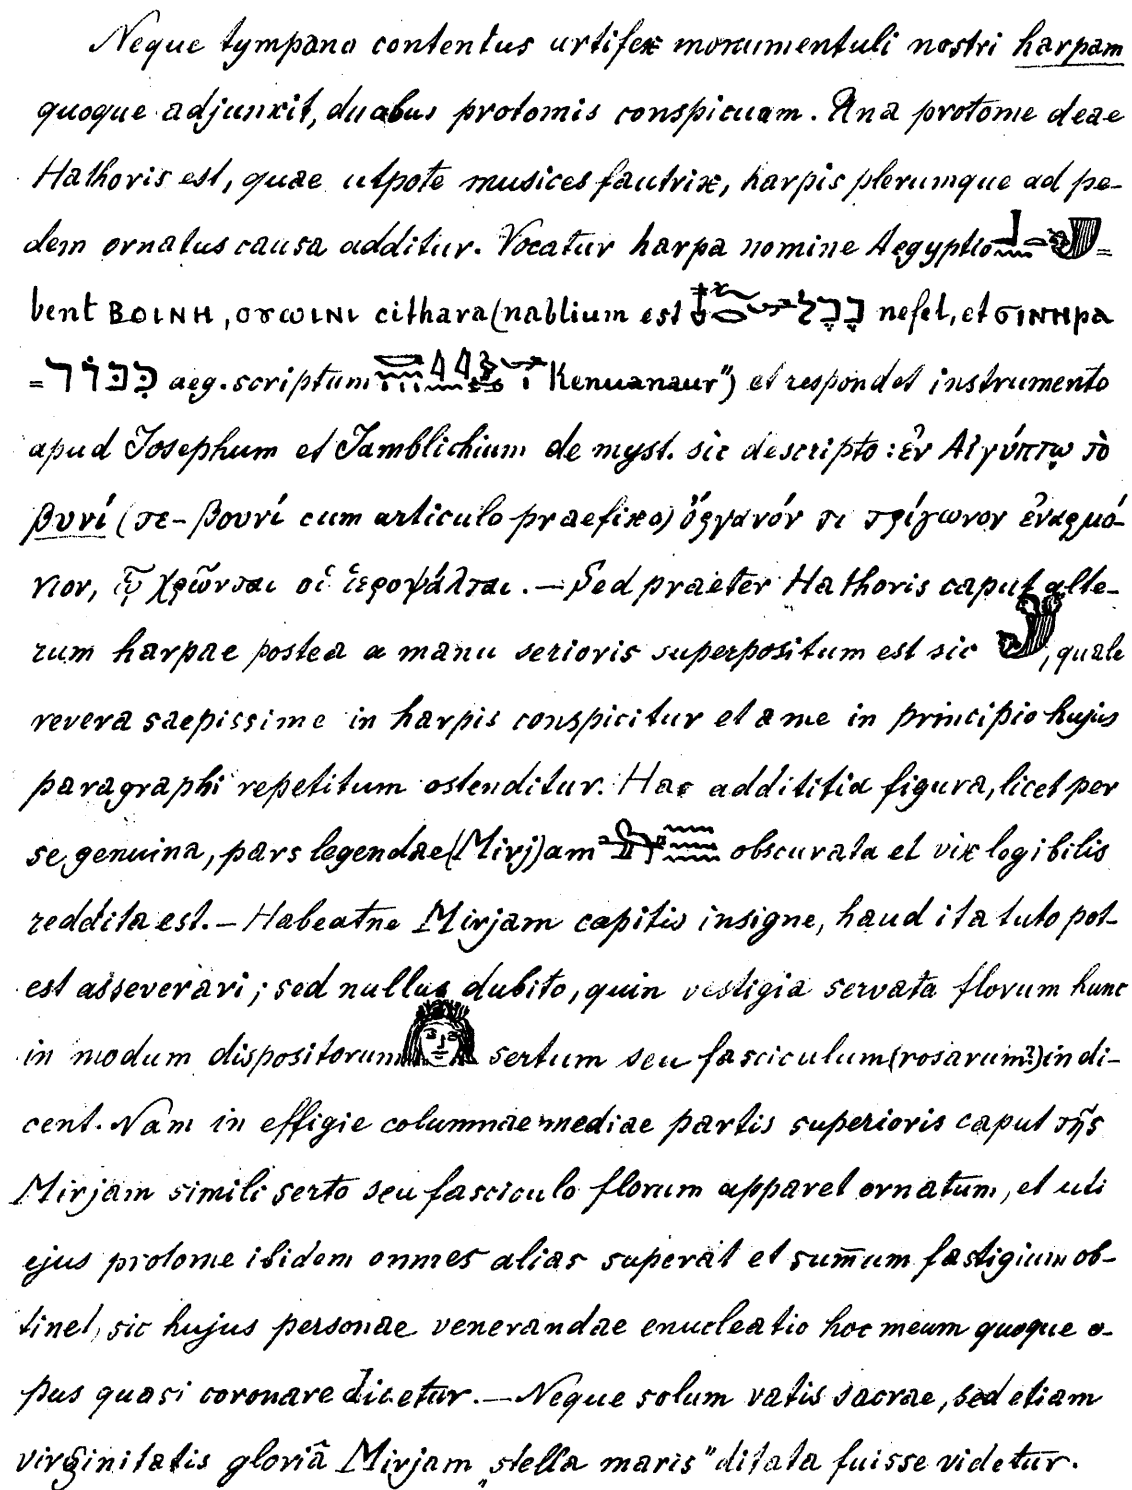 Neque tympano contentus artifex monumentuli nostri harpam
quoque adjunxit, duabus protomis conspicuam. Una protome deae
Hathoris est, quae utpote musices fautrix, harpis plerumque ad pe-
dem ornatus causa additur. Vocatur harpa nomine Aegyptio =
bent ⲂⲞⲒⲚⲎ, ⲟⲩⲱⲓⲛⲓ cithara (nablium est נֵבֶל nefel, et ϭⲓⲛⲏⲣⲁ
= כִּנּוֹר aeg. scriptum Kenuanaur") et respondet instrumento
apud Josephum et Jamblichium de myst. sic descripto: ἐν Αἰγύπτῳ τὸ
βυνί (τε-βουνί cum articulo praefixo) ὄργανόν τι τρίγωνον ἐναρμό-
νιον, ᾧ χρῶνται οἱ ἱεροψάλται. — Sed praeter Hathoris caput alte-
rum harpae postea a manu serioris superpositum est sic , quale
revera saepissime in harpis conspicitur et a me in principio hujus
paragraphi repetitum ostenditur. Hac addititia figura, licet per
se genuina, pars legendae (Mirj)am obscurata et vix legibilis
reddita est. — Habeatne Mirjam capitis insigne, haud ita tuto pot-
est asseverari; sed nullus dubito, quin vestigia servata florum hunc
in modum dispositorum sertum seu fasciculum (rosarum?) indi-
cent. Nam in effigie columnae mediae partis superioris caput τῆς
Mirjam simili serto seu fasciculo florum apparet ornatum, et uti
ejus protome ibidem omnes alias superat et sum̄um fastigium ob-
tinet, sic hujus personae venerandae enucleatio hoc meum quoque o-
pus quasi coronare dicetur. — Neque solum vatis sacrae, sed etiam
virginitatis gloriâ Mirjam „stella maris" ditata fuisse videtur.